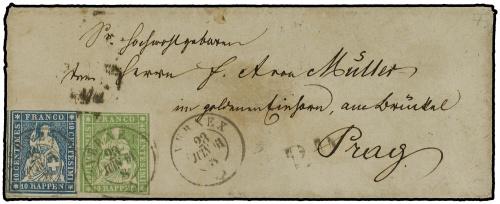 Sr Hochwohlgeboren
Herrn F. A von Müller
im goldenen Einhorn, am Brückel
Prag.
FRANCO
10 CENTIMES
10 CENTESIMI
10 RAPPEN
FRANCO
CENTESIMI
RAPPEN
23
JUIN 61